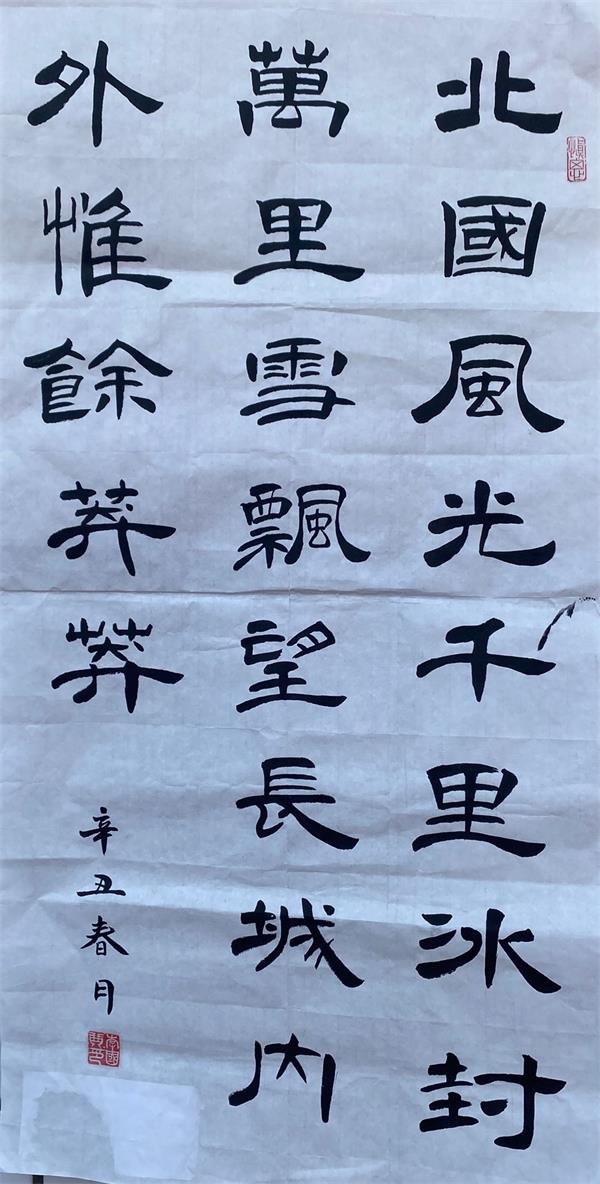 北國風光千里冰封
萬里雪飄望長城內
外惟餘莽莽
辛丑春月